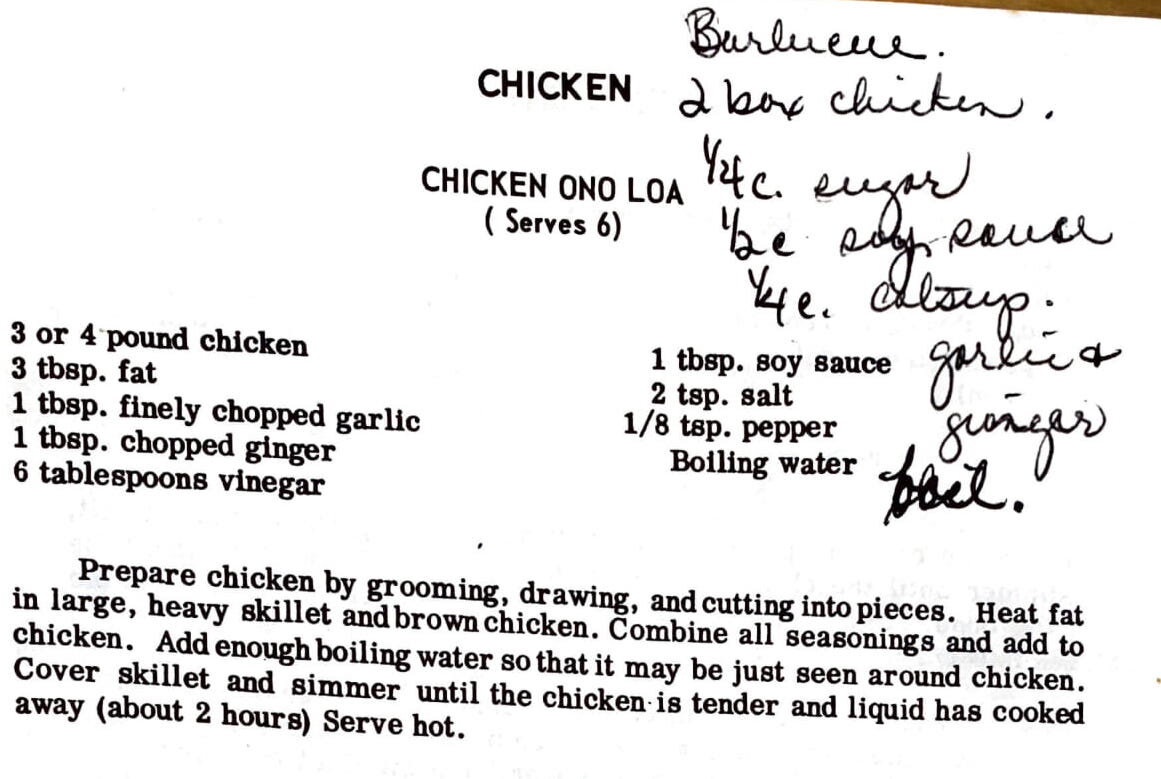 Burbucue.
CHICKEN
2 box chicken.
CHICKEN ONO LOA
( Serves 6)
1/4 c. sugar
1/2 c soy sauce
1/4 c. catsup.
garlic &
ginger
boil.
3 or 4 pound chicken
3 tbsp. fat
1 tbsp. finely chopped garlic
1 tbsp. chopped ginger
6 tablespoons vinegar
1 tbsp. soy sauce
2 tsp. salt
1/8 tsp. pepper
Boiling water
Prepare chicken by grooming, drawing, and cutting into pieces. Heat fat
in large, heavy skillet and brown chicken. Combine all seasonings and add to
chicken. Add enough boiling water so that it may be just seen around chicken.
Cover skillet and simmer until the chicken is tender and liquid has cooked
away (about 2 hours) Serve hot.